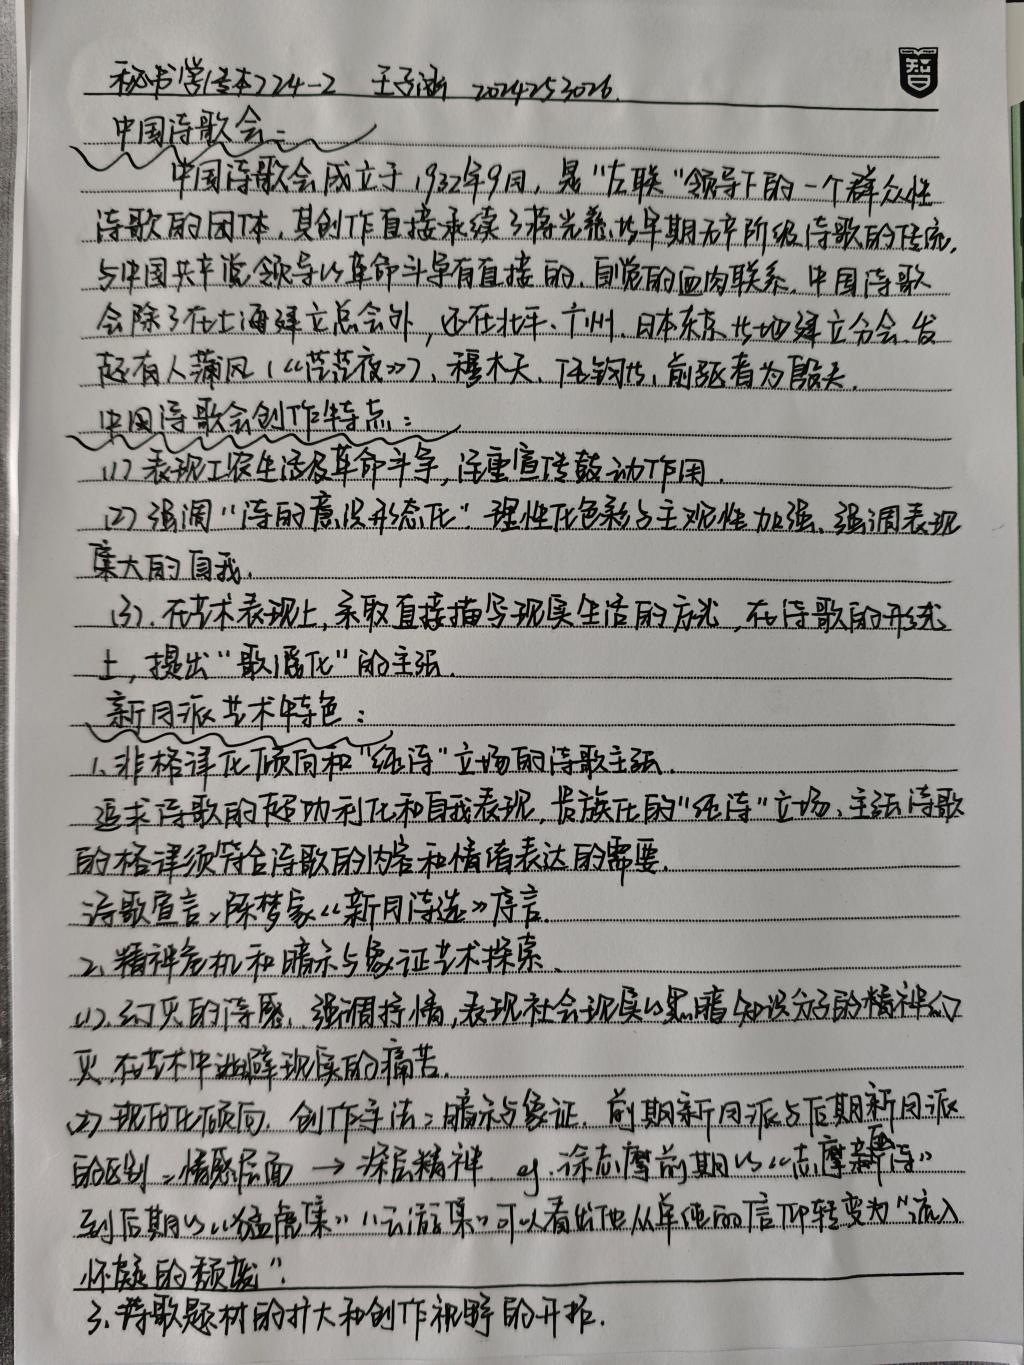 智
秘书学(专本)224-2 王子涵 2024253026.
中国诗歌会:
中国诗歌会成立于1932年9月,是"左联"领导下的一个群众性
诗歌的团体,其创作直接承续了蒋光慈等早期无产阶级诗歌的传统,
与中国共产党领导的革命斗争有直接的、自觉的血肉联系.中国诗歌
会除了在上海建立总会外,还在北平、广州、日本东京等地建立分会.发
起有人蒲风(《茫茫夜》)、穆木天、任钧等,前驱者为殷夫.
中国诗歌会创作特点:
(1)表现工农生活及革命斗争,注重宣传鼓动作用.
(2)强调"诗的意识形态化".理性化色彩与主观性加强、强调表现
集大的自我.
(3).在艺术表现上,采取直接描写现实生活的方式,在诗歌的形式
上,提出"歌谣化"的主张.
新月派艺术特色:
1、非格律化倾向和"纯诗"立场的诗歌主张.
追求诗歌的超功利化和自我表现,贵族化的"纯诗"立场、主张诗歌
的格律须符合诗歌的内容和情绪表达的需要.
诗歌宣言:陈梦家《新月诗选》序言.
2、精神危机和暗示与象证艺术探索.
(1).幻灭的诗感、强调抒情,表现社会现实的黑暗知识分子的精神幻
灭.在艺术中逃避现实的痛苦.
(2)现代化倾向.创作手法:暗示与象证.前期新月派与后期新月派
的区别:情感层面→深层精神.eg.徐志摩前期的《志摩的诗》
到后期的《猛虎集》《云游集》可以看出他从单纯的信仰转变为"流入
怀疑的颓废".
3、诗歌题材的扩大和创作视野的开拓.